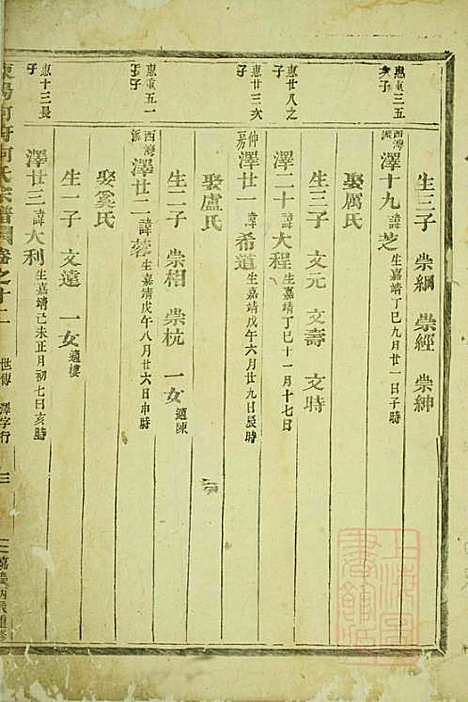 生三子 崇綱 崇經 崇紳
惠東三五
次子
西灣派
澤十九 諱芝 生嘉靖丁巳九月廿一日子時
娶厲氏
生三子 文元 文壽 文時
惠廿八之
子
澤二十 諱大程 生嘉靖丁巳十一月十七日
娶盧氏
惠廿三次
子
仲房
澤廿一 諱希道 生嘉靖戊午六月廿九日辰時
生二子 崇相 崇杭 一女 適陳
惠東五一
子
西灣派
澤廿二 諱蓉 生嘉靖戊午八月廿六日申時
娶奚氏
生一子 文遠 一女 適樓
惠十三長
子
澤廿三 諱大利 生嘉靖己未正月初七日亥時
東陽何府何氏宗譜 卷之十二 世傳 澤字行 三
上海圖書館藏